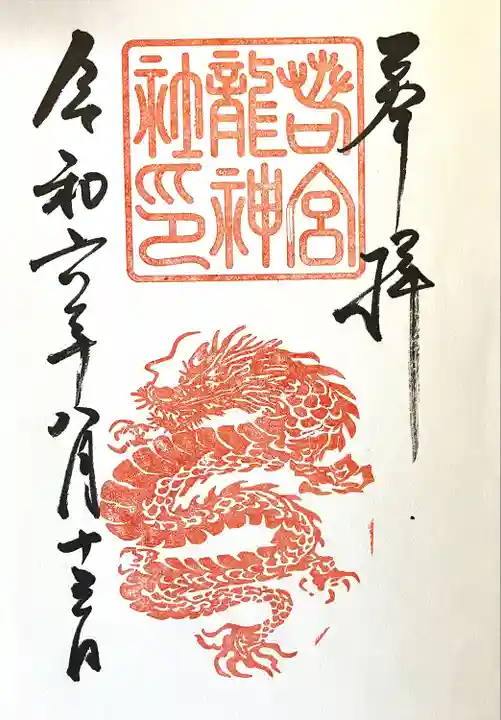 奉拝
若宮
龍神
社印
令和六年八月十五日